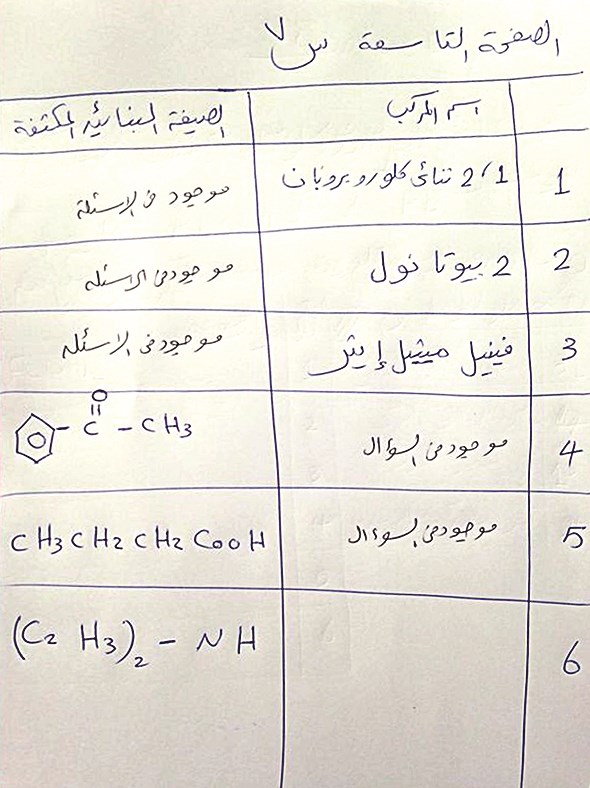 الصفحة التاسعة س٧
اسم المركب الصيغة البنائية المكثفة
1 2،1 ثنائي كلورو بروبان موجود في الاسئلة
2 2 بيوتا نول موجود في الاسئله
3 فينيل ميثيل إيثر موجود في الاسئله
4 موجود في السؤال
O
C – CH3
5 موجود في السؤال CH3CH2CH2COOH
6 (C2H3)2 – NH